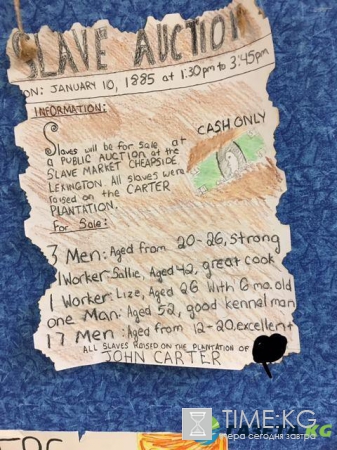 SLAVE AUCTION
ON: JANUARY 10, 1885 at 1:30pm to 3:45pm
INFORMATION:
CASH ONLY
Slaves will be for sale at
a PUBLIC AUCTION at the
SLAVE MARKET CHEAPSIDE,
LEXINGTON. All slaves were
raised on the CARTER
PLANTATION.
For Sale:
3 Men: Aged from 20-26, strong
1 Worker Sallie, Aged 42, great cook
1 Worker Lize, Aged 26 with 6 mo. old
one Man: Aged 52, good kennel man
17 Men: Aged from 12-20, excellent
ALL SLAVES RAISED ON THE PLANTATION OF
JOHN CARTER
TIME.KG
вера сегодня завтра
KG